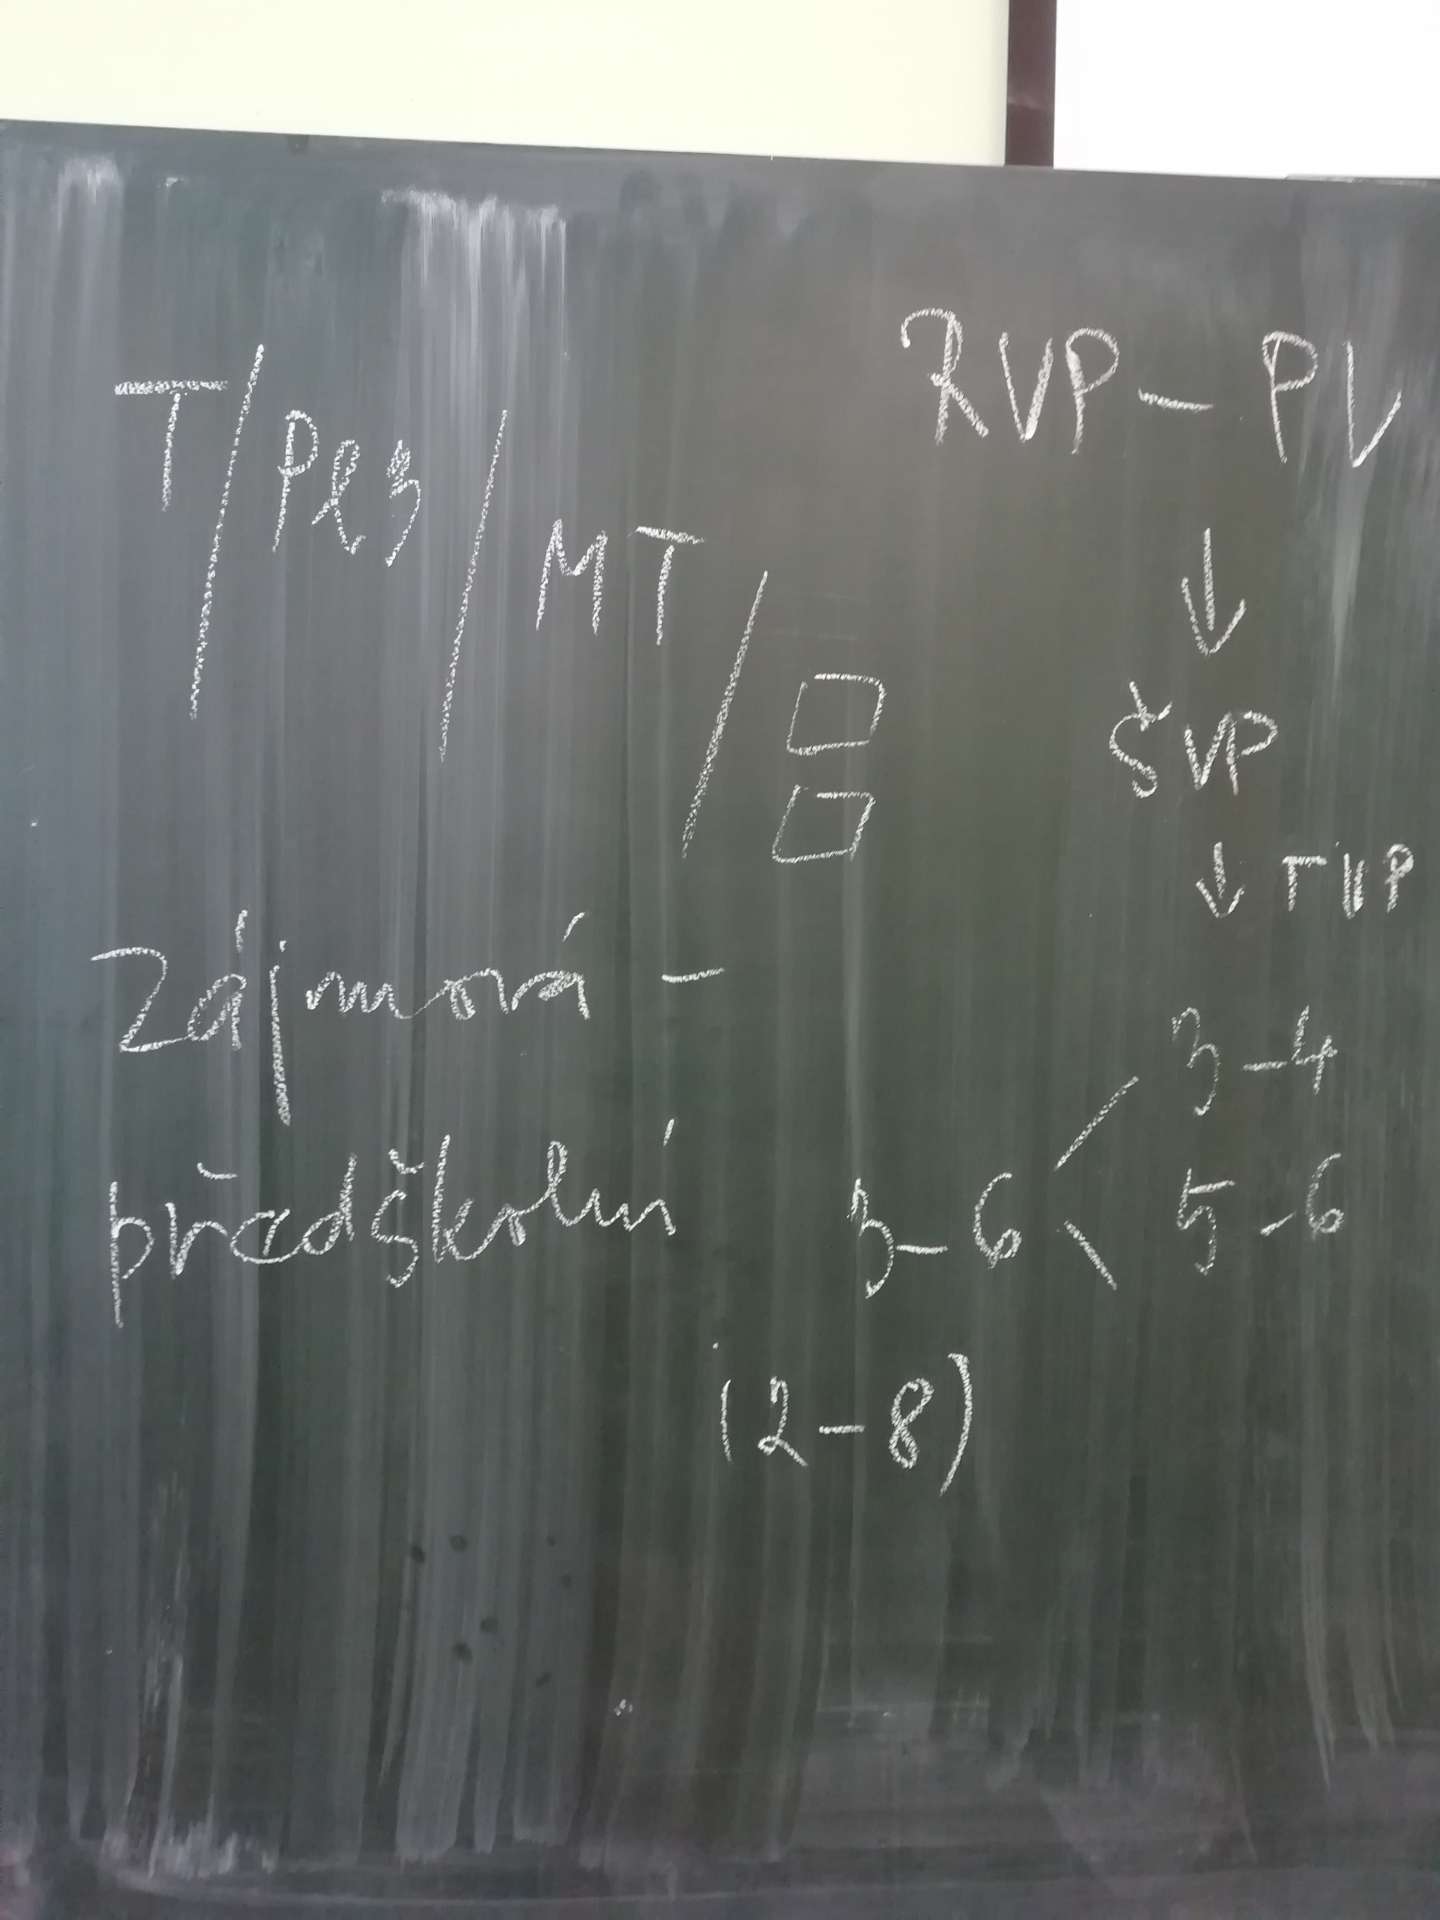 RVP – PV
T / Prez / MT /
↓
ŠVP
↓ TVP
Zájmová –
3 – 4
předškolní 3 – 6
5 – 6
(2 – 8)